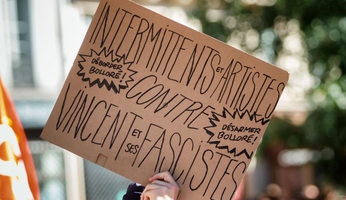 INTERMITTENTS ET ARTISTES
DÉSARMER
BOLLORÉ !
CONTRE
DÉSARMER
BOLLORÉ !
VINCENT ET SES FASCISTES